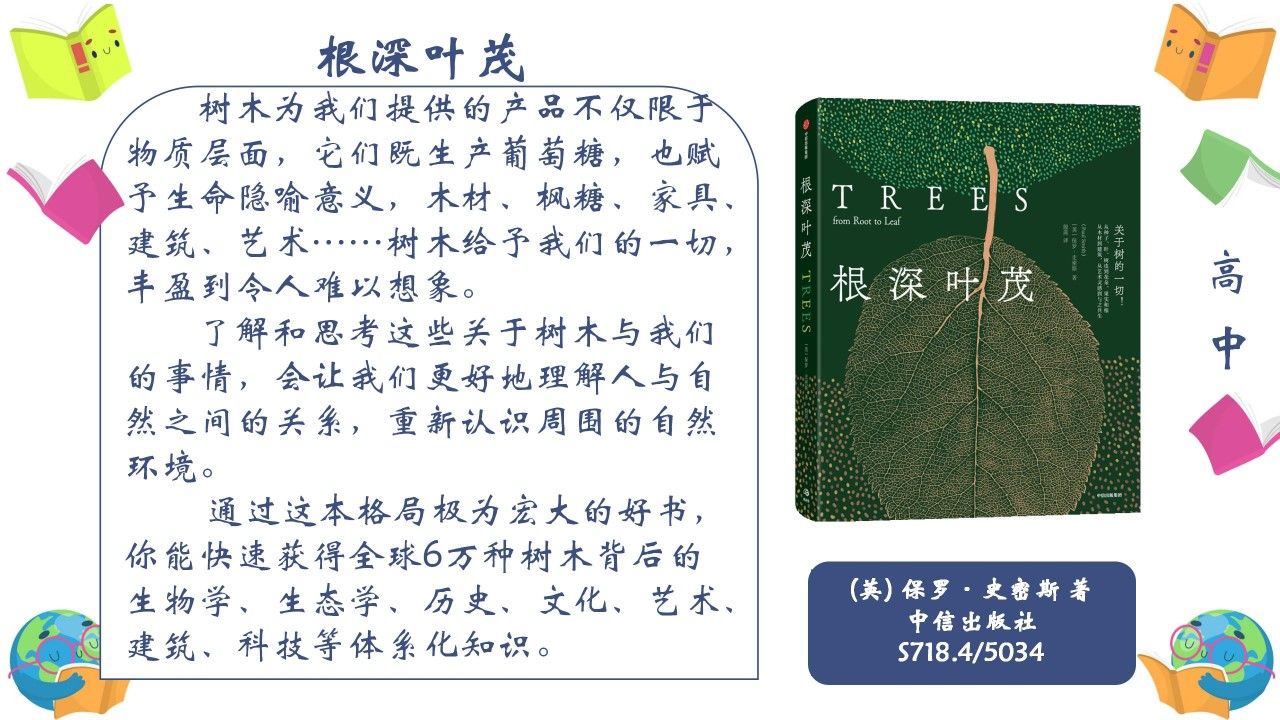 根深叶茂
树木为我们提供的产品不仅限于
物质层面，它们既生产葡萄糖，也赋
予生命隐喻意义，木材、枫糖、家具、
建筑、艺术……树木给予我们的一切，
丰盈到令人难以想象。
了解和思考这些关于树木与我们
的事情，会让我们更好地理解人与自
然之间的关系，重新认识周围的自然
环境。
通过这本格局极为宏大的好书，
你能快速获得全球6万种树木背后的
生物学、生态学、历史、文化、艺术、
建筑、科技等体系化知识。
根深叶茂 TREES
TREES
from Root to Leaf
根深叶茂
关于树的一切！
中信出版集团
高
中
(英) 保罗·史密斯 著
中信出版社
S718.4/5034